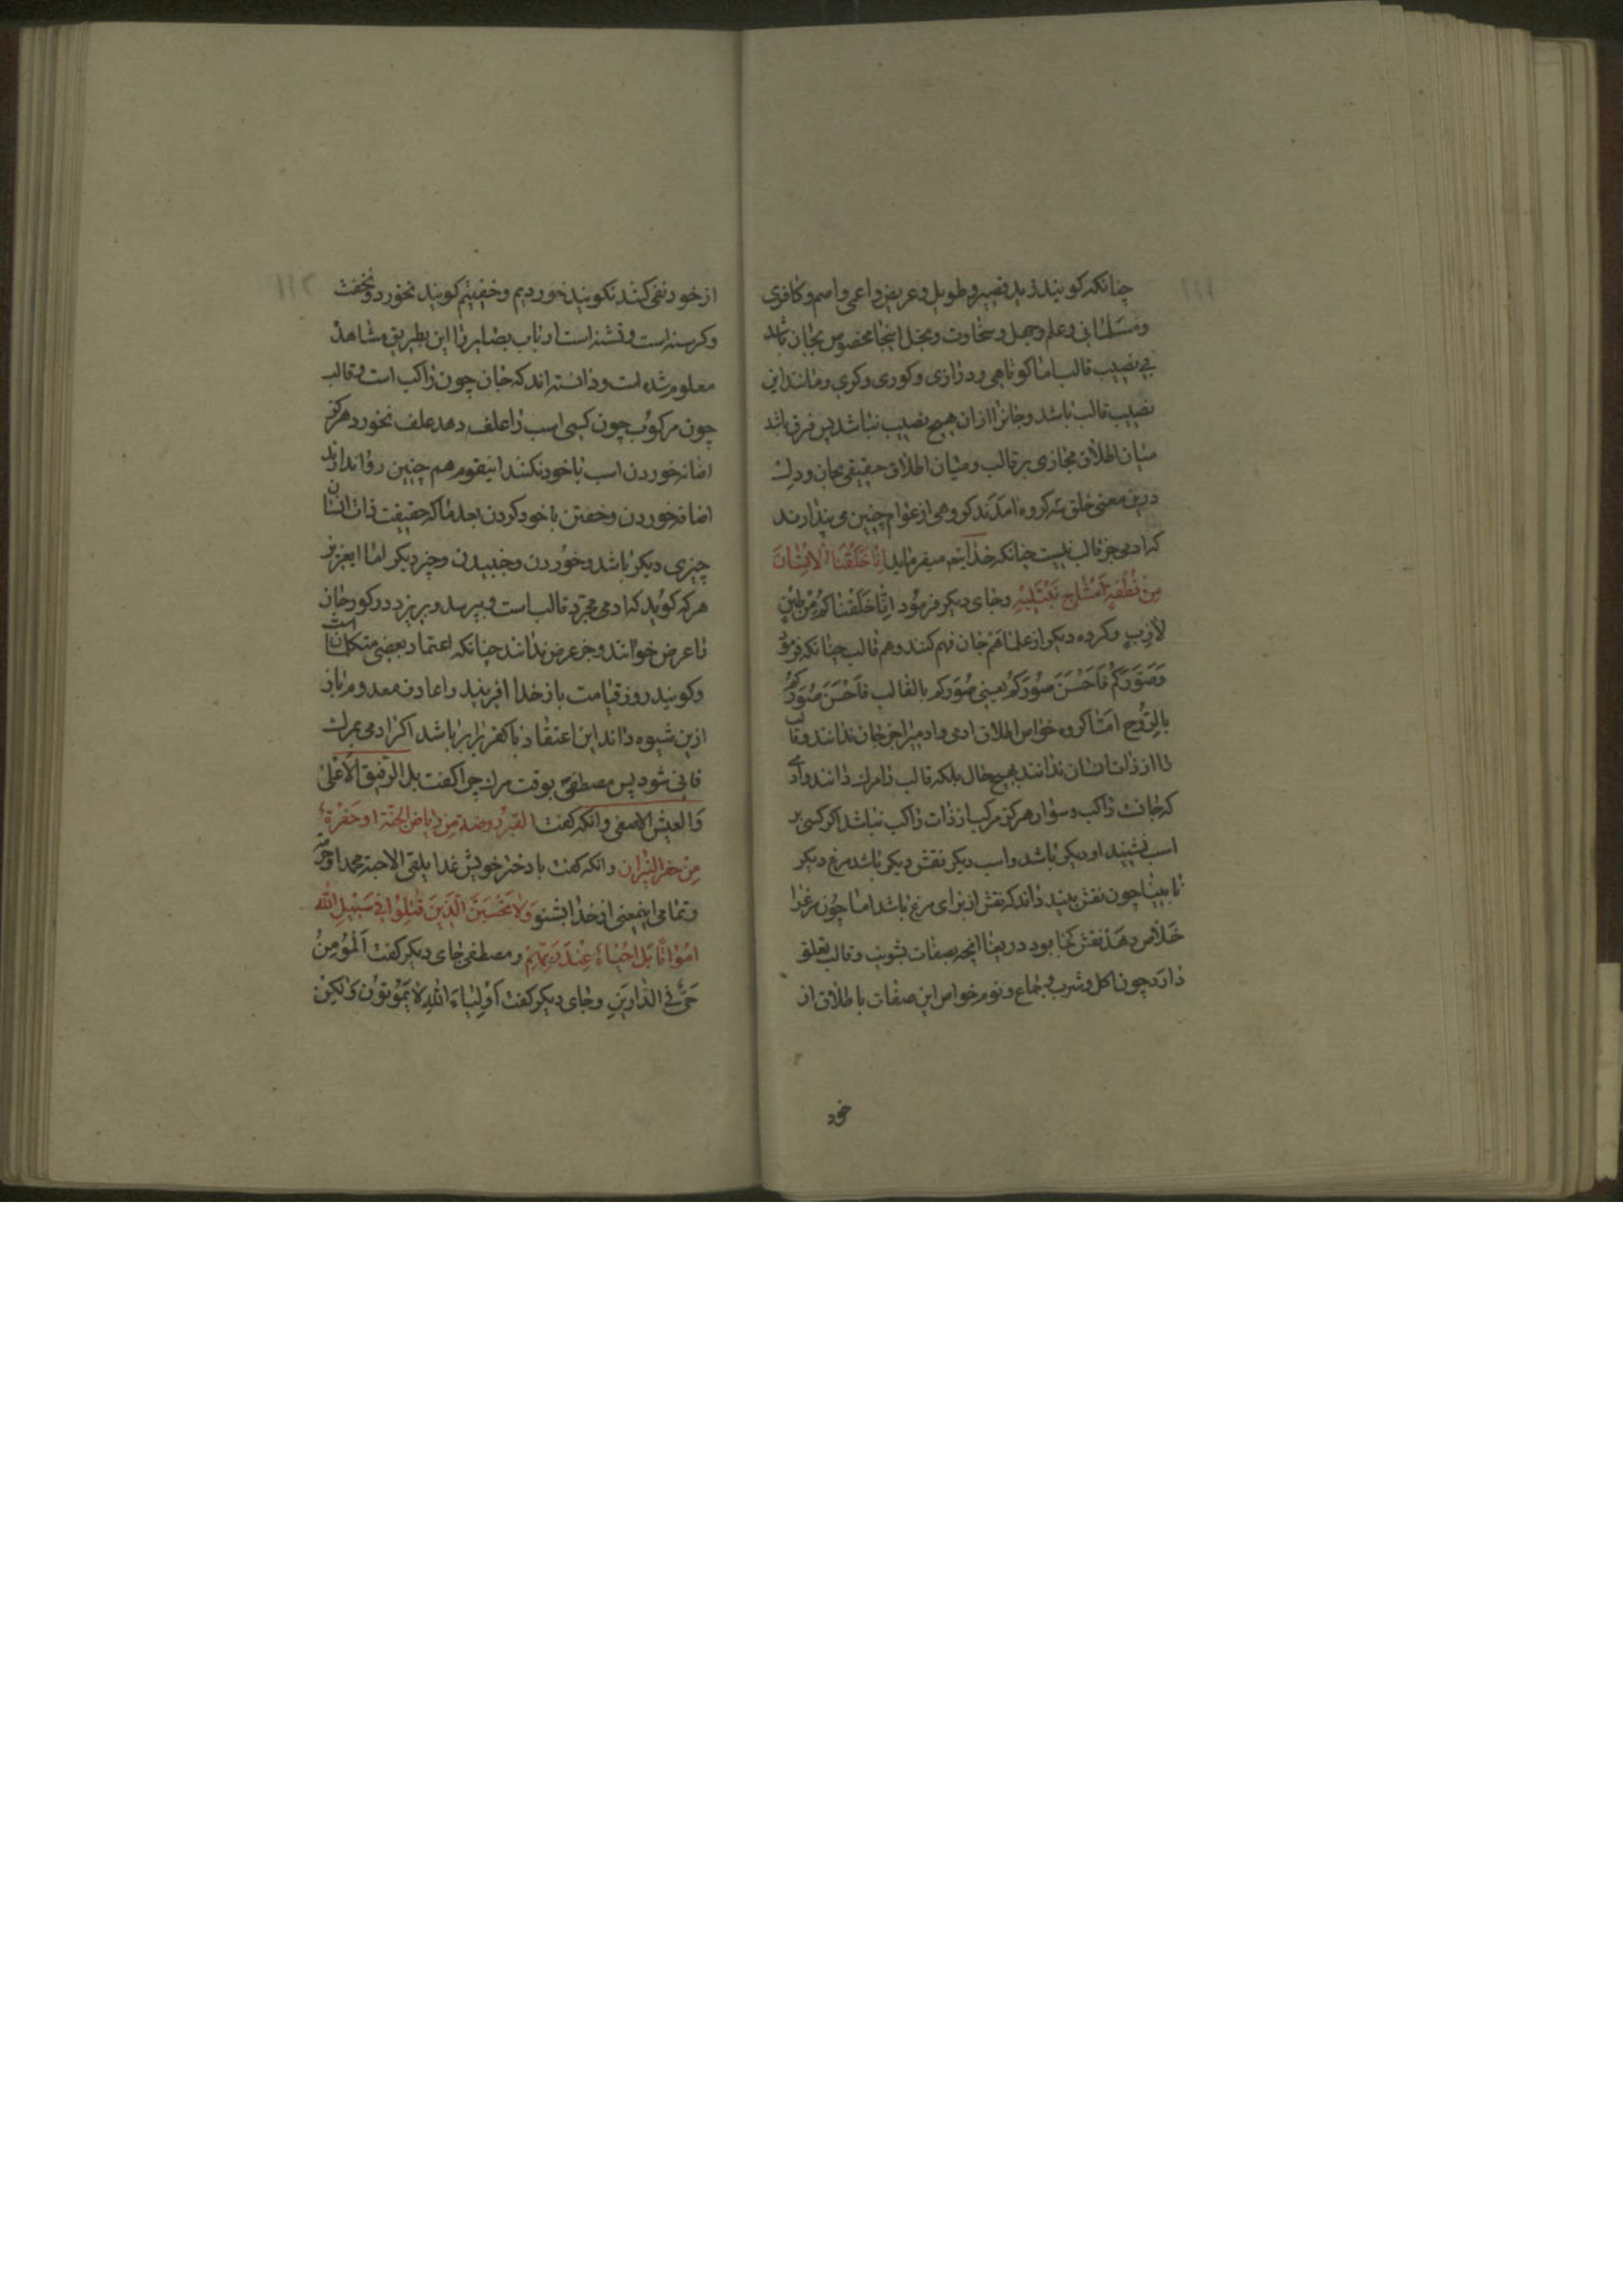 چنانکه کویند زید قصیر و طویل و عریض و اعمی و اصم و کافری
و مسلمانی و علم و جهل و سخاوت و بخل اینجا مخصوص بجان باشد
بی نصیب قالب اما کوتاهی و درازی و کوری و کری و مانند این
نصیب قالب باشد و جانرا ازان هیچ نصیب نباشد پس فرق باشد
میان اطلاق مجازی بر قالب و میان اطلاق حقیقی بجان و دل
درین معنی خلق سه کروه امدند کروهی از عوام چنین می پندارند
که ادمی جز قالب نیست چنانکه خدایتع میفرماید انا خلقنا الانسان
من نطفة امشاج نبتلیه و جای دیکر فرمود انا خلقناکم من طین
لازب و کروه دیکر از علما هم جان فهم کنند و هم قالب چنانکه فرمود
وصورکم فاحسن صورکم یعنی صورکم بالقالب فاحسن صورکم
بالروح اما کروه خواص اطلاق ادمی و ادمیرا جز جان ندانند و قالب
را از ذات انسان ندانند بهیچ حال بلکه قالب را مرکب دانند و ادمی
که جانست راکب و سوار هرکز مرکب از ذات راکب نباشد اکر کسی بر
اسب نشیند او دیکر باشد و اسب دیکر نقش دیکر باشد مرغ دیکر
نابینا چون نقش بیند داند که نقش از برای مرغ باشد اما چون مرغرا
خلاص دهد نقش کجا بود دریغا انچه بصفات بشریت و قالب تعلق
دارد چون اکل و شرب و جماع و نوم خواص این صفات باطلاق از
خود
از خود نفی کنند نکویند خوردیم و خفتیم کویند نخورد و نخفت
و کرسنه است و تشنه است ارباب بصایر را این بطریق مشاهده
معلوم شده است و دانسته اند که جان چون راکب است و قالب
چون مرکوب چون کسی اسب را علف دهد علف نخورد هرکز
اضافه خوردن اسب با خود نکنند اینقوم هم چنین روا ندارند
اضافه خوردن و خفتن با خود کردن بعد ما که حقیقت ذات انسان
چیزی دیکر باشد و خوردن و خسبیدن و چیز دیکر اما ایعزیز
هر که کوید که ادمی مجرد قالب است و بمیرد و بریزد در کور جان
را عرض خوانند و جز عرض ندانند چنانکه اعتماد بعضی متکلمان است
و کویند روز قیامت باز خدا افریند و اعادت معدوم باز
ازین شیوه داند این اعتقاد با کفر برابر باشد اکر ادمی بمرک
فانی شود پس مصطفی بوقت مرک چرا کفت بل الرفیق الاعلی
والعیش الاصفی و انکه کفت القبر روضة من ریاض الجنة او حفرة
من حفر النیران و انکه کفت با دختر خویش غدا یلقی الاحبة محمدا و حزبه
و تمامی اینمعنی از خدا بشنو ولا تحسبن الذین قتلوا فی سبیل الله
امواتا بل احیاء عند ربهم و مصطفی جای دیکر کفت المؤمن
حی فی الدارین و جای دیکر کفت اولیاء الله لا یموتون ولکن